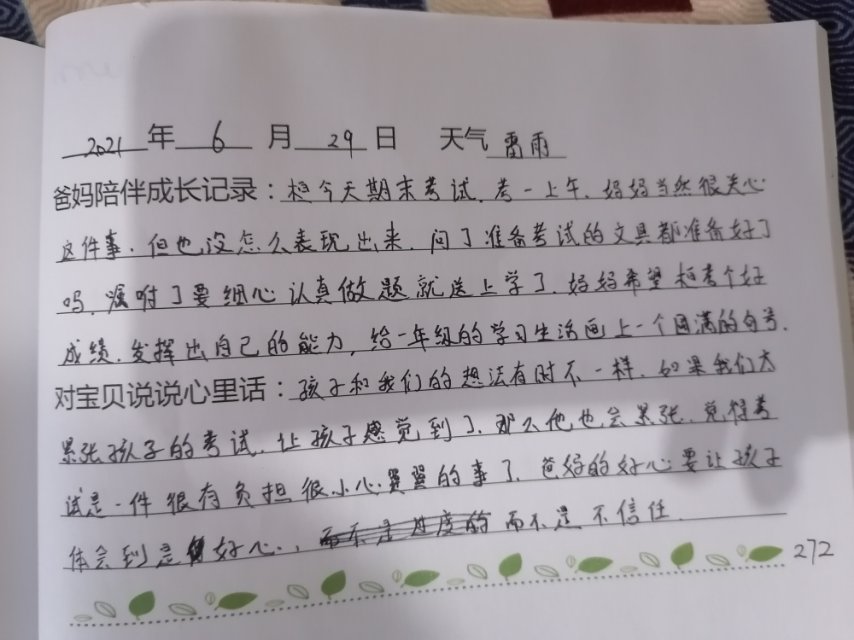 2021 年 6 月 29 日 天气 雷雨
爸妈陪伴成长记录：桓今天期末考试，考一上午，妈妈当然很关心
这件事，但也没怎么表现出来，问了准备考试的文具都准备好了
吗，嘱咐了要细心认真做题就送上学了，妈妈希望桓考个好
成绩，发挥出自己的能力，给一年级的学习生活画上一个圆满的句号。
对宝贝说说心里话：孩子和我们的想法有时不一样，如果我们太
紧张孩子的考试，让孩子感觉到了，那么他也会紧张，觉得考
试是一件很有负担很小心翼翼的事了，爸妈的好心要让孩子
体会到是好心，而不是过度的 而不是不信任。
272